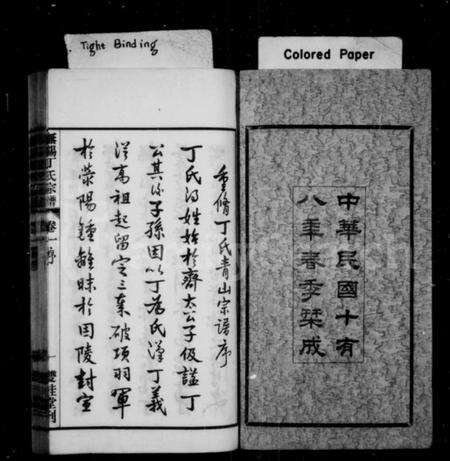 Tight Binding
Colored Paper
中華民國十有
八年春季栞成
重脩丁氏青山宗譜序
丁氏得姓始於齊太公子伋謚丁
公其後子孫因以丁為氏漢丁義
從高祖起留定三秦破項羽軍
於滎陽鍾離昧於固陵封宣
丁氏宗譜
卷一序
一
雙桂堂刊